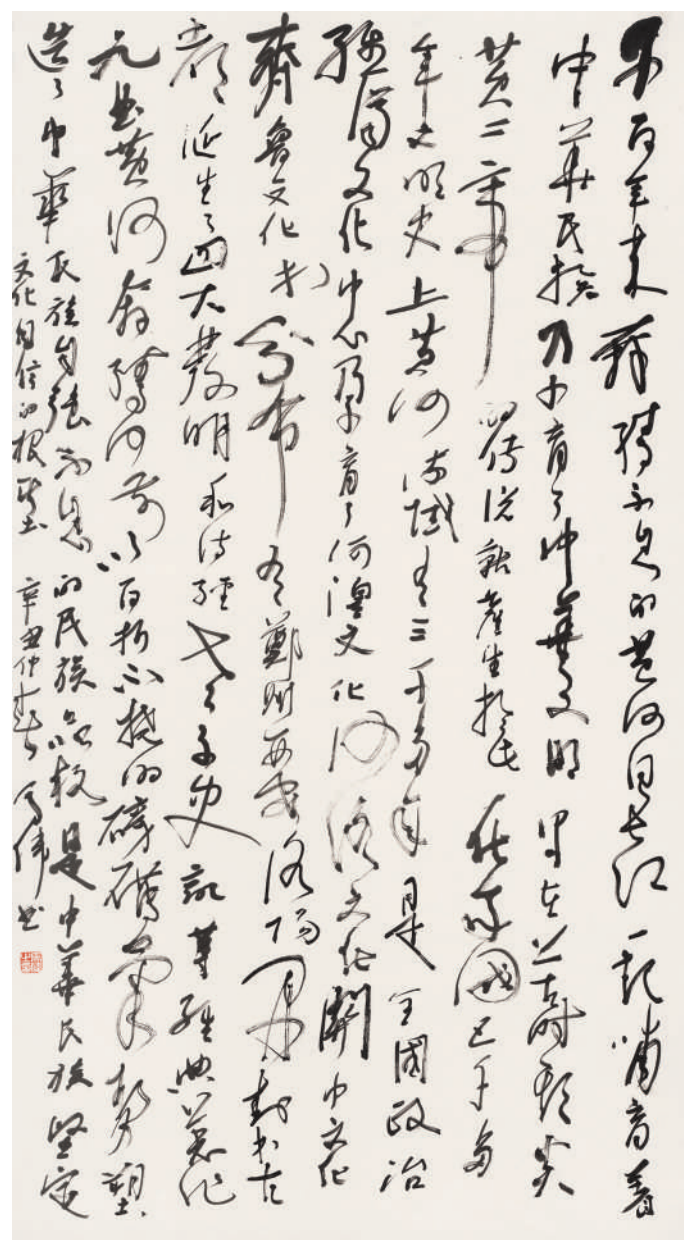 千百年来奔騰不息的黄河同長江一起哺育着
中華民族孕育了中華文明早在上古時期炎
黄二帝的傳说就產生於此在我國五千多
年文明史上黄河流域有三千多年是全國政治
經濟文化中心孕育了河湟文化河洛文化關中文化
齊魯文化等分布有鄭州西安洛陽開封等古
都誕生了四大發明和詩經老子史記等經典著作
九曲黄河奔騰向前以百折不撓的磅礴氣勢塑
造了中華民族自强不息的民族品格是中華民族堅定
文化自信的根基 辛丑仲春 伟书